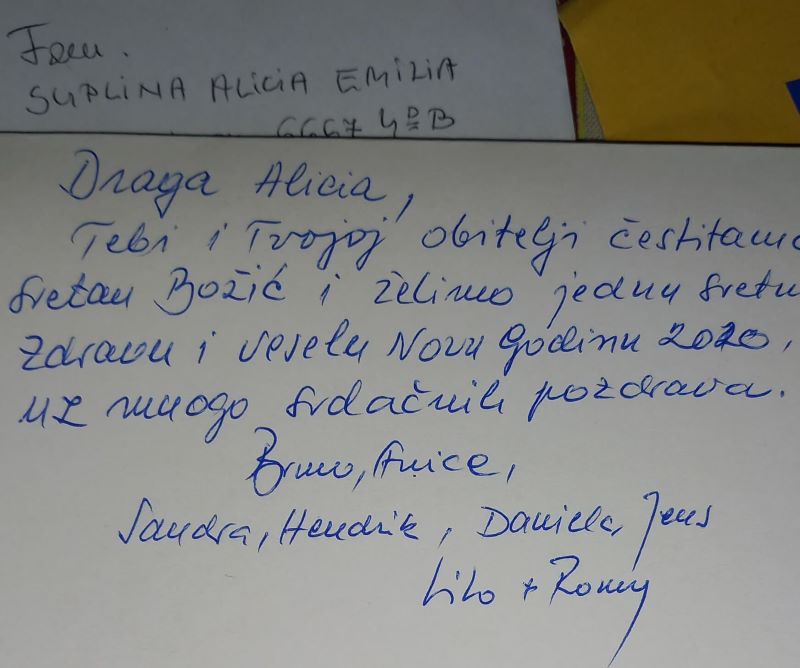 Fam.
SUPLINA ALICIA EMILIA
6667 4º B
Draga Alicia,
Tebi i Tvojoj obitelji čestitamo
sretan Božić i želimo jednu sretnu
zdravu i veselu Novu Godinu 2020,
uz mnogo srdačnih pozdrava.
Bruno, Anice,
Sandra, Hendrik, Daniela, Jens
Lilo + Romy